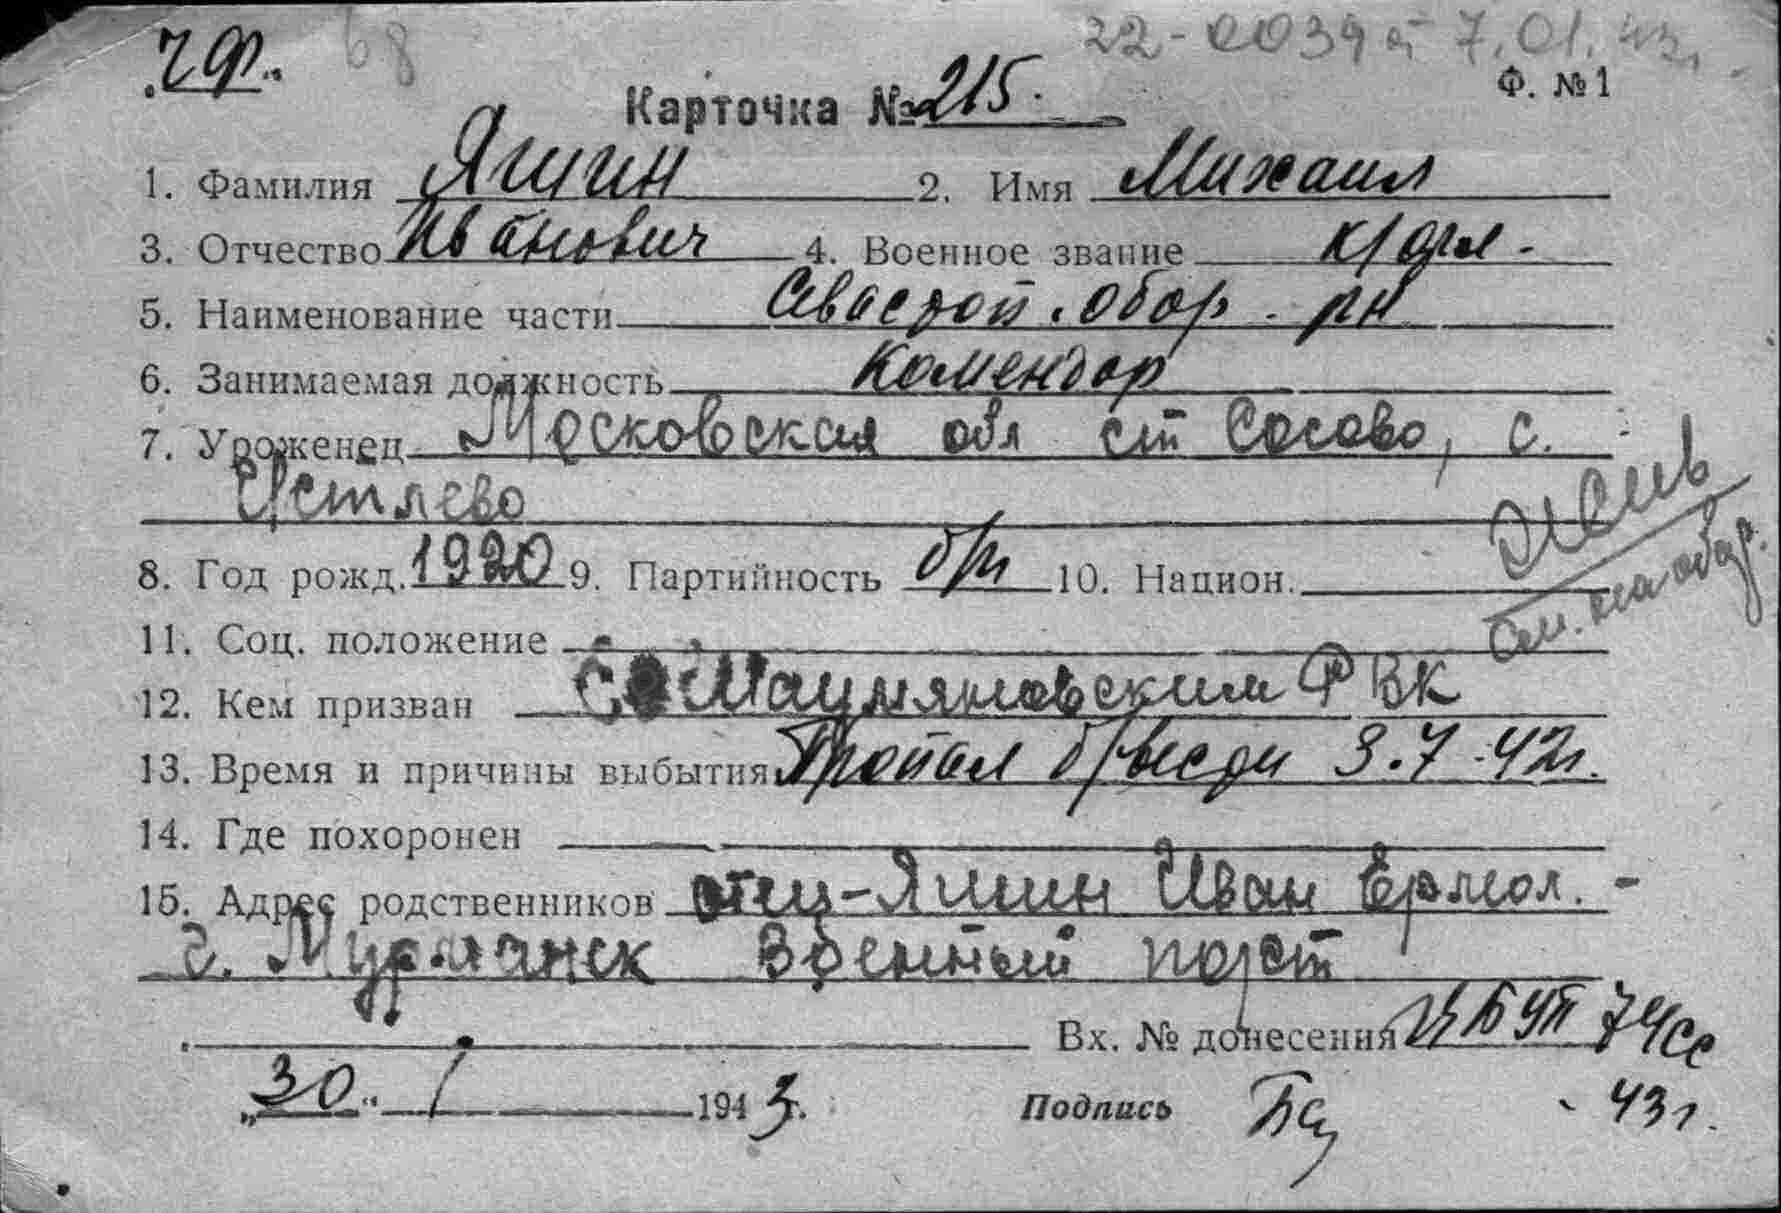 ЧФ. 68 22-0039 от 7.01.43г.
Ф. №1
Карточка № 215.
1. Фамилия Яшин 2. Имя Михаил
3. Отчество Иванович 4. Военное звание к/фл.
5. Наименование части Севастоп. обор. рн
6. Занимаемая должность Комендор
7. Уроженец Московская обл ст Сосово, с.
Устлево
8. Год рожд. 1920 9. Партийность б/п 10. Национ.
жив
см. на обор.
11. Соц. положение
12. Кем призван Шаумяновским РВК
13. Время и причины выбытия Пропал б/вести 3.7.42г.
14. Где похоронен
15. Адрес родственников отец - Яшин Иван Ермол. -
г. Мурманск Военный порт
Вх. № донесения ЦБУП 74сс
„30“ / 1943г. Подпись - 43г.